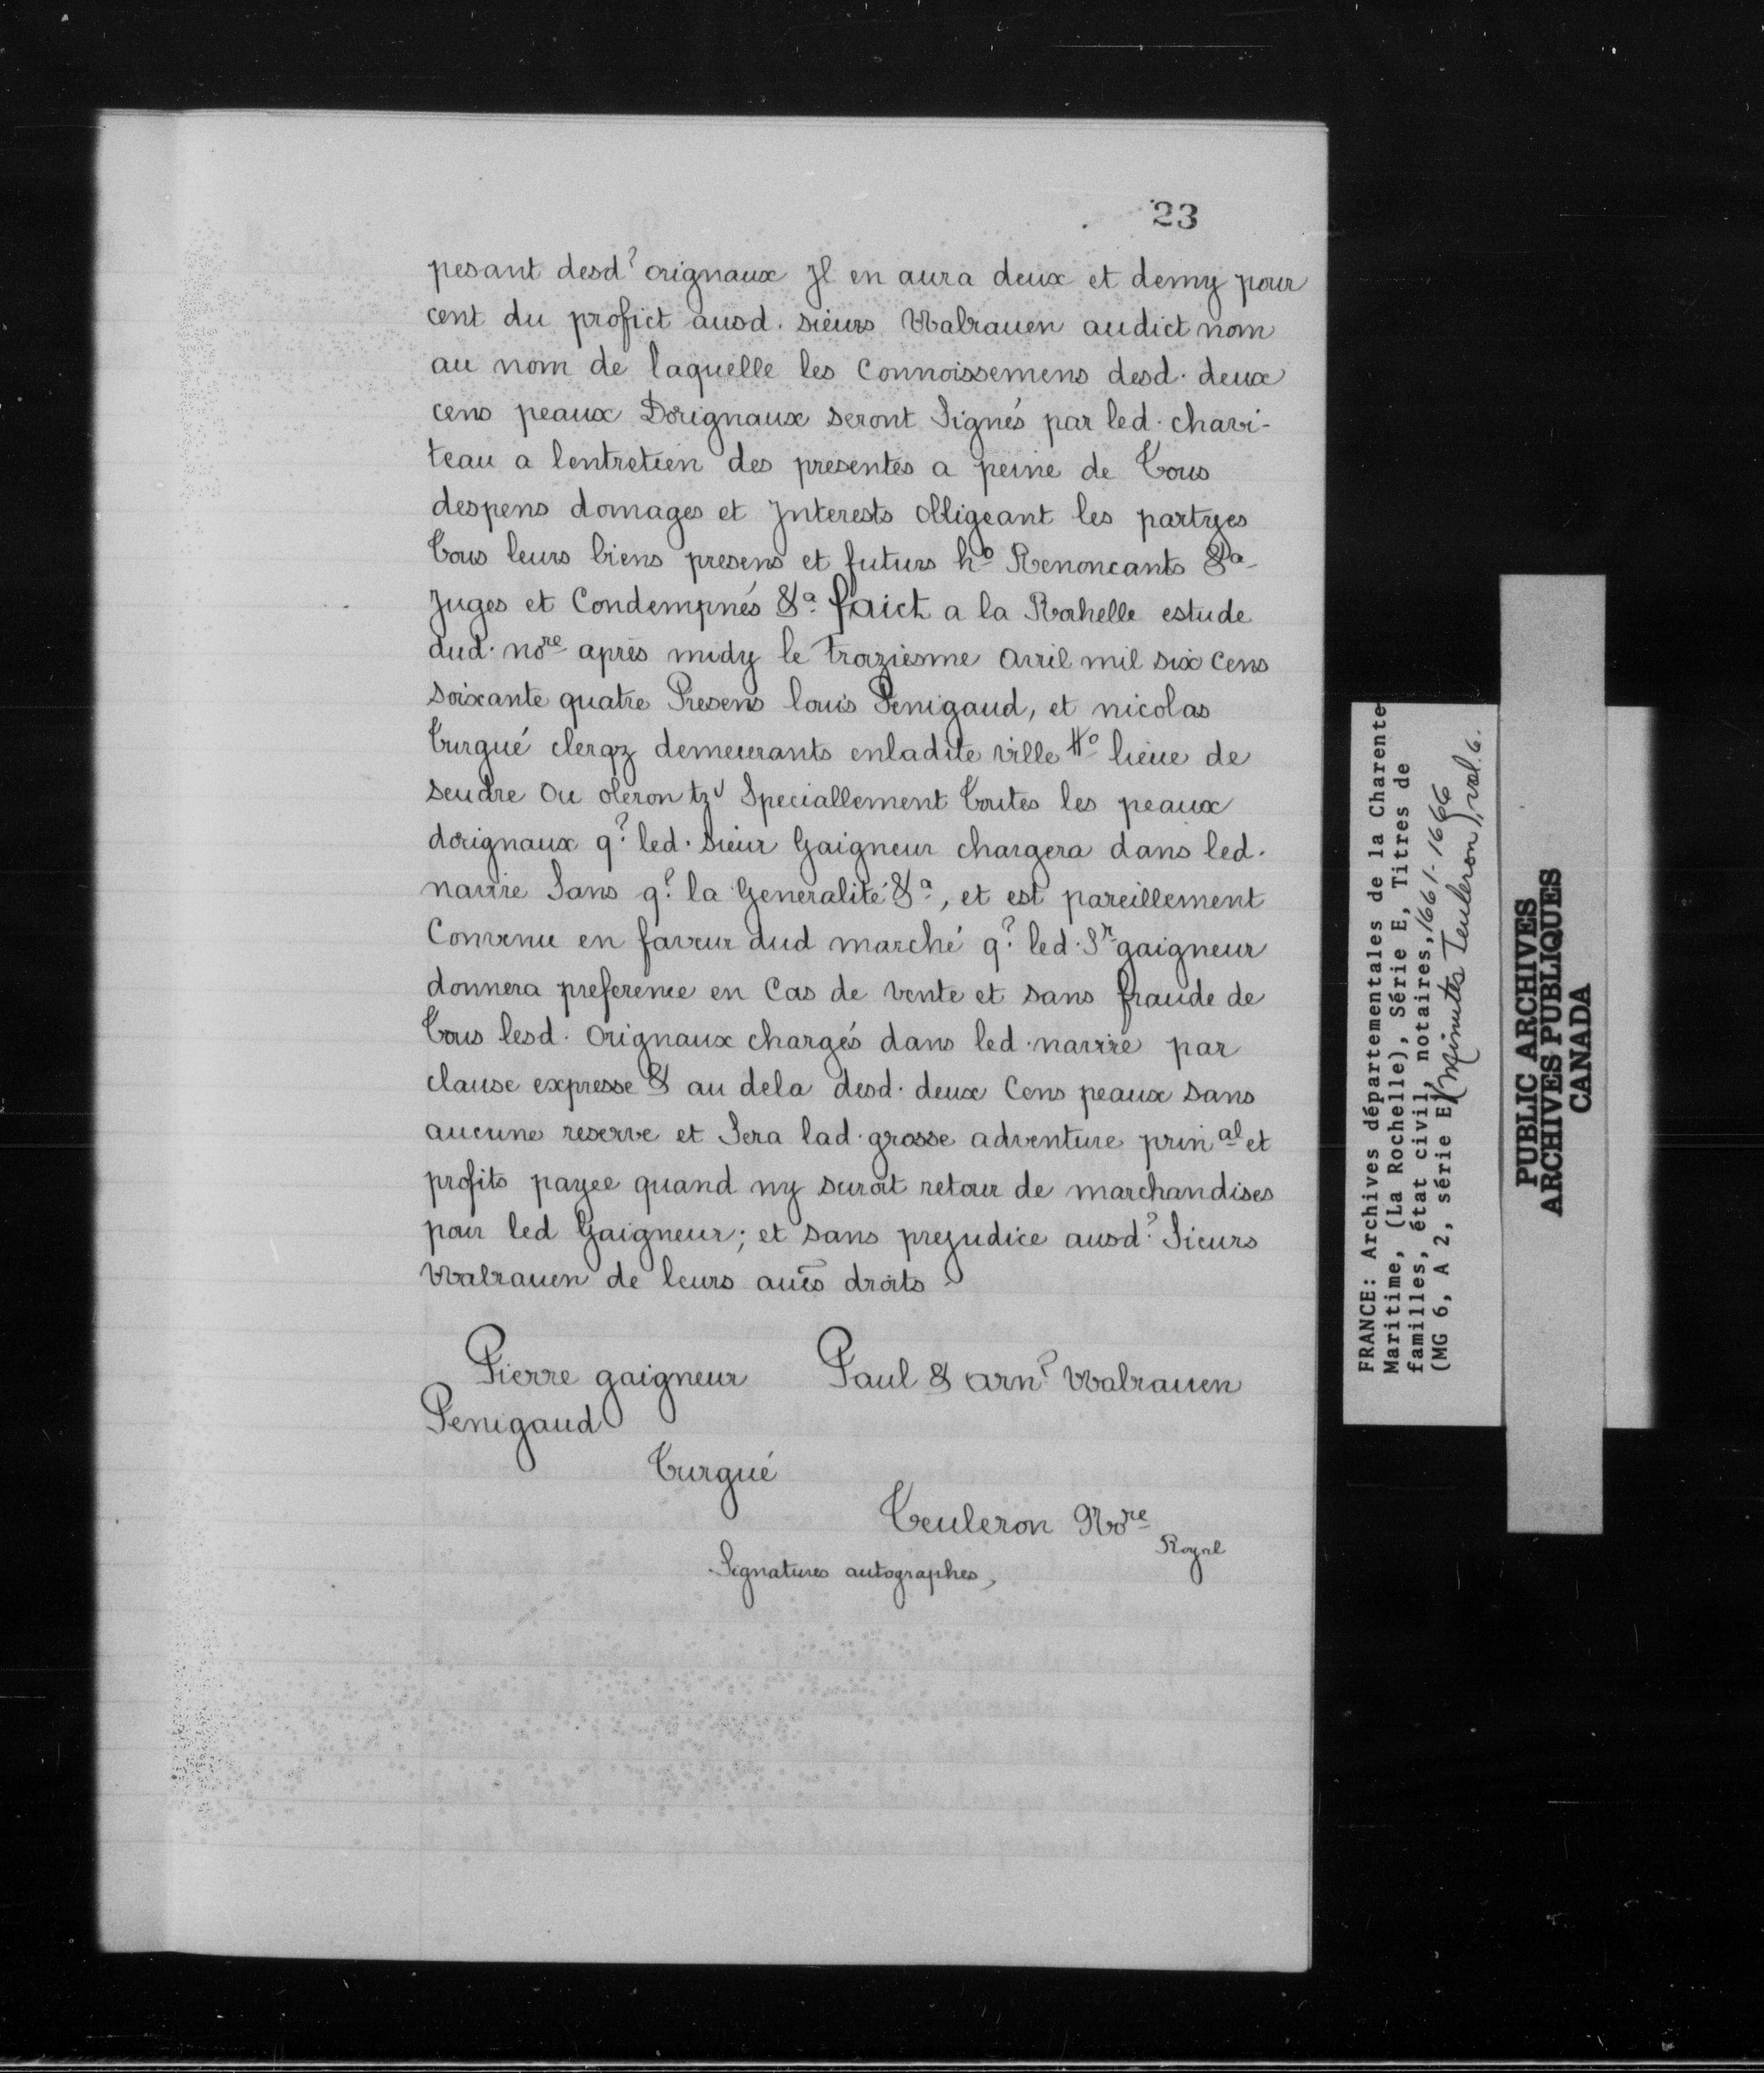 23
pesant desd? orignaux Jl en aura deux et demy pour
cent du profict ausd. sieurs Walrauen audict nom
au nom de laquelle les Connoissemens desd. deux
cens peaux Dorignaux seront Signés par led. chavi-
teau a lentretien des presentes a peine de Tous
despens domages et Jnterests obligeant les partyes
Tous leurs biens presens et futurs h° Renoncants &a
Juges et Condempnés &a faict a la Rochelle estude
dud. nore apres midy le troiziesme avril mil six Cens
soixante quatre Presens louis Penigaud, et nicolas
Turgué clergz demeurants enladite ville H° lieue de
seudre ou oleron tz Speciallement Toutes les peaux
dorignaux q? led. sieur Gaigneur chargera dans led.
navire Sans q? la Generalité &a, et est pareillement
Convenu en faveur dud marché q? led. Sr gaigneur
donnera preference en Cas de vente et sans fraude de
Tous lesd. orignaux chargés dans led. navire par
clause expresse & au dela desd. deux Cens peaux sans
aucune reserve et Sera lad. grosse adventure prinal et
profits payee quand ny seroit retour de marchandises
pour led Gaigneur; et sans prejudice ausd? Sieurs
Walrauen de leurs autes droits
Pierre gaigneur Paul & arn? Walrauen
Penigaud
Turgué
Teuleron Nore
Royal
Signatures autographes,
FRANCE: Archives départementales de la Charente
Maritime, (La Rochelle), Série E, Titres de
familles, état civil, notaires, 1661-1666
(MG 6, A 2, série E) (Minutes Teuleron), vol. 6.
PUBLIC ARCHIVES
ARCHIVES PUBLIQUES
CANADA